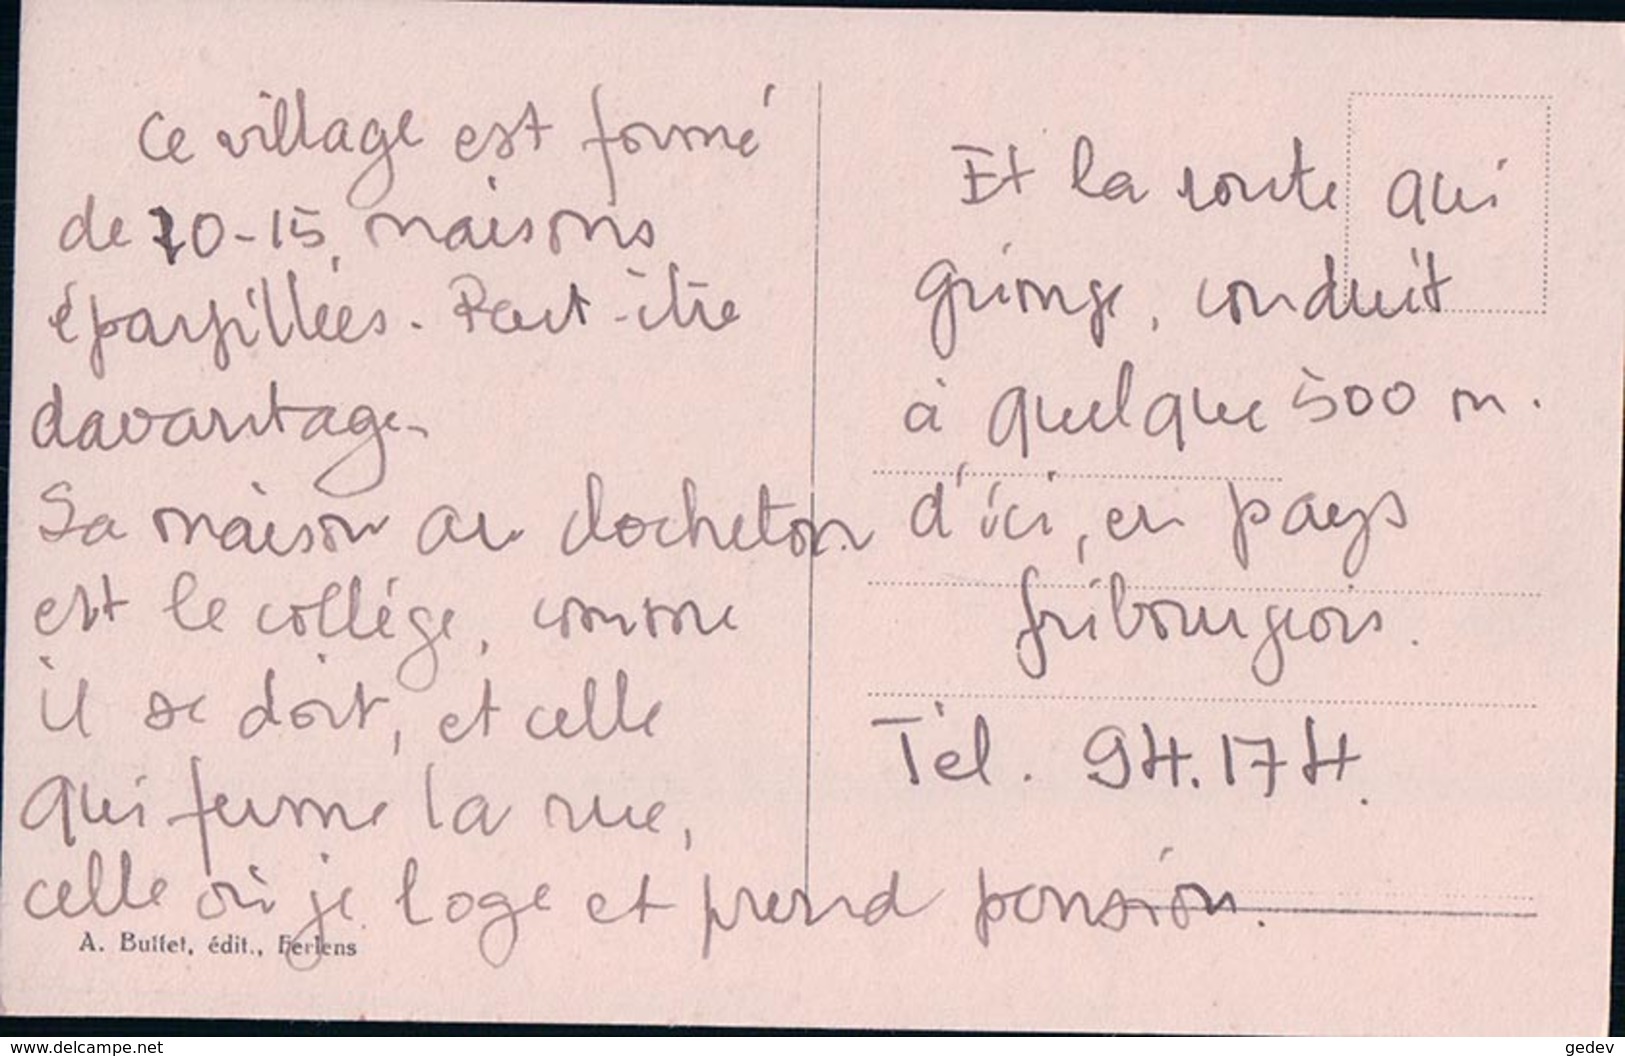 Ce village est formé
de 10-15 maisons
éparpillées. Peut-être
davantage.
La maison au clocheton
est le collége, comme
il se doit, et celle
qui ferme la rue,
celle où je loge et prend pension.
A. Buffet, édit., Ferlens
Et la route qui
grimpe, conduit
à quelque 500 m.
d'ici, en pays
fribourgeois.
Tél. 94.174.
www.delcampe.net
gedev